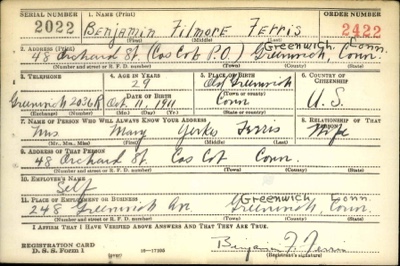 SERIAL NUMBER 1. NAME (Print) ORDER NUMBER
2022 BENJAMIN FILMORE FERRIS 2422
(First) (Middle) (Last)
2. ADDRESS (Print) Greenwich, Conn.
48 Orchard St (Cos Cob P.O.) Greenwich, Conn.
(Number and street or R. F. D. number) (Town) (County) (State)
3. TELEPHONE 4. AGE IN YEARS 5. PLACE OF BIRTH 6. COUNTRY OF CITIZENSHIP
29 Old Greenwich
DATE OF BIRTH (Town or county)
Greenwich 2036R Oct. 11, 1911 Conn U.S.
(Exchange) (Number) (Mo.) (Day) (Yr.) (State or country)
7. NAME OF PERSON WHO WILL ALWAYS KNOW YOUR ADDRESS 8. RELATIONSHIP OF THAT PERSON
Mrs Mary Yerks Ferris Wife
(Mr., Mrs., Miss) (First) (Middle) (Last)
9. ADDRESS OF THAT PERSON
48 Orchard St. Cos Cob Conn.
(Number and street or R. F. D. number) (Town) (County) (State)
10. EMPLOYER'S NAME
Self
11. PLACE OF EMPLOYMENT OR BUSINESS Greenwich Conn.
248 Greenwich Ave Greenwich Conn.
(Number and street or R. F. D. number) (Town) (County) (State)
I AFFIRM THAT I HAVE VERIFIED ABOVE ANSWERS AND THAT THEY ARE TRUE.
REGISTRATION CARD
D. S. S. FORM 1 16—17105 Benjamin F. Ferris
(Registrant's signature)